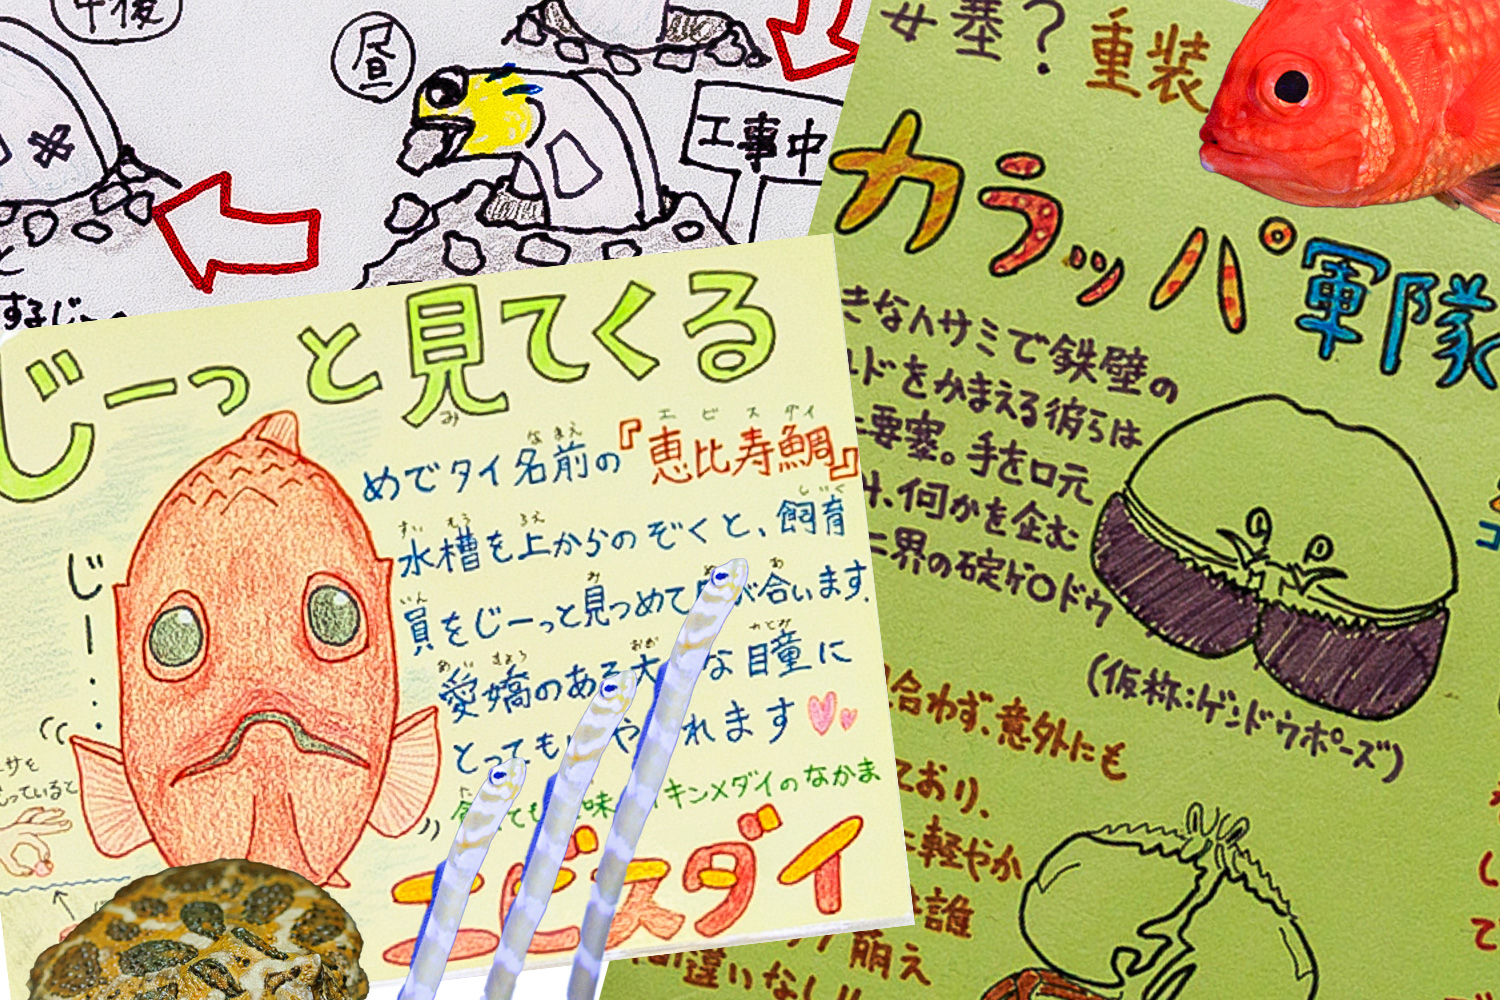 午後
昼
工事中
するじ
じーっと見てくる
めでタイ名前の『恵比寿鯛』
エビスダイ
水槽を上からのぞくと、飼育
すいそう うえ しいく
員をじーっと見つめて目が合います。
いん み め あ
愛嬌のある大 な目瞳に
あいきょう おお ひとみ
とっても や れます
ても 味 キンメダイのなかま
エビスダイ
じー・・・・
エサを
もっていると
要塞?重装
カラッパ軍隊
きなハサミで鉄壁の
ルドをかまえる彼らは
要塞。手を口元
け、何かを企む
ニ界の碇ゲ〇ドウ
(仮称:ゲンドウポーズ)
合わず、意外にも
ており、
に軽やか
誰
萌え
間違いなし!!